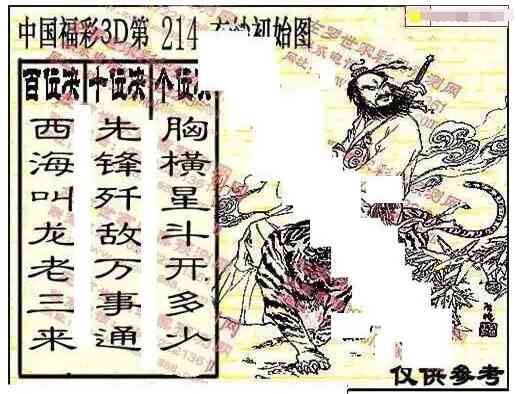 中国福彩3D第 214 初始图
百位决 十位决 个位决
西海叫龙老三来
先锋歼敌万事通
胸横星斗开多少
仅供参考